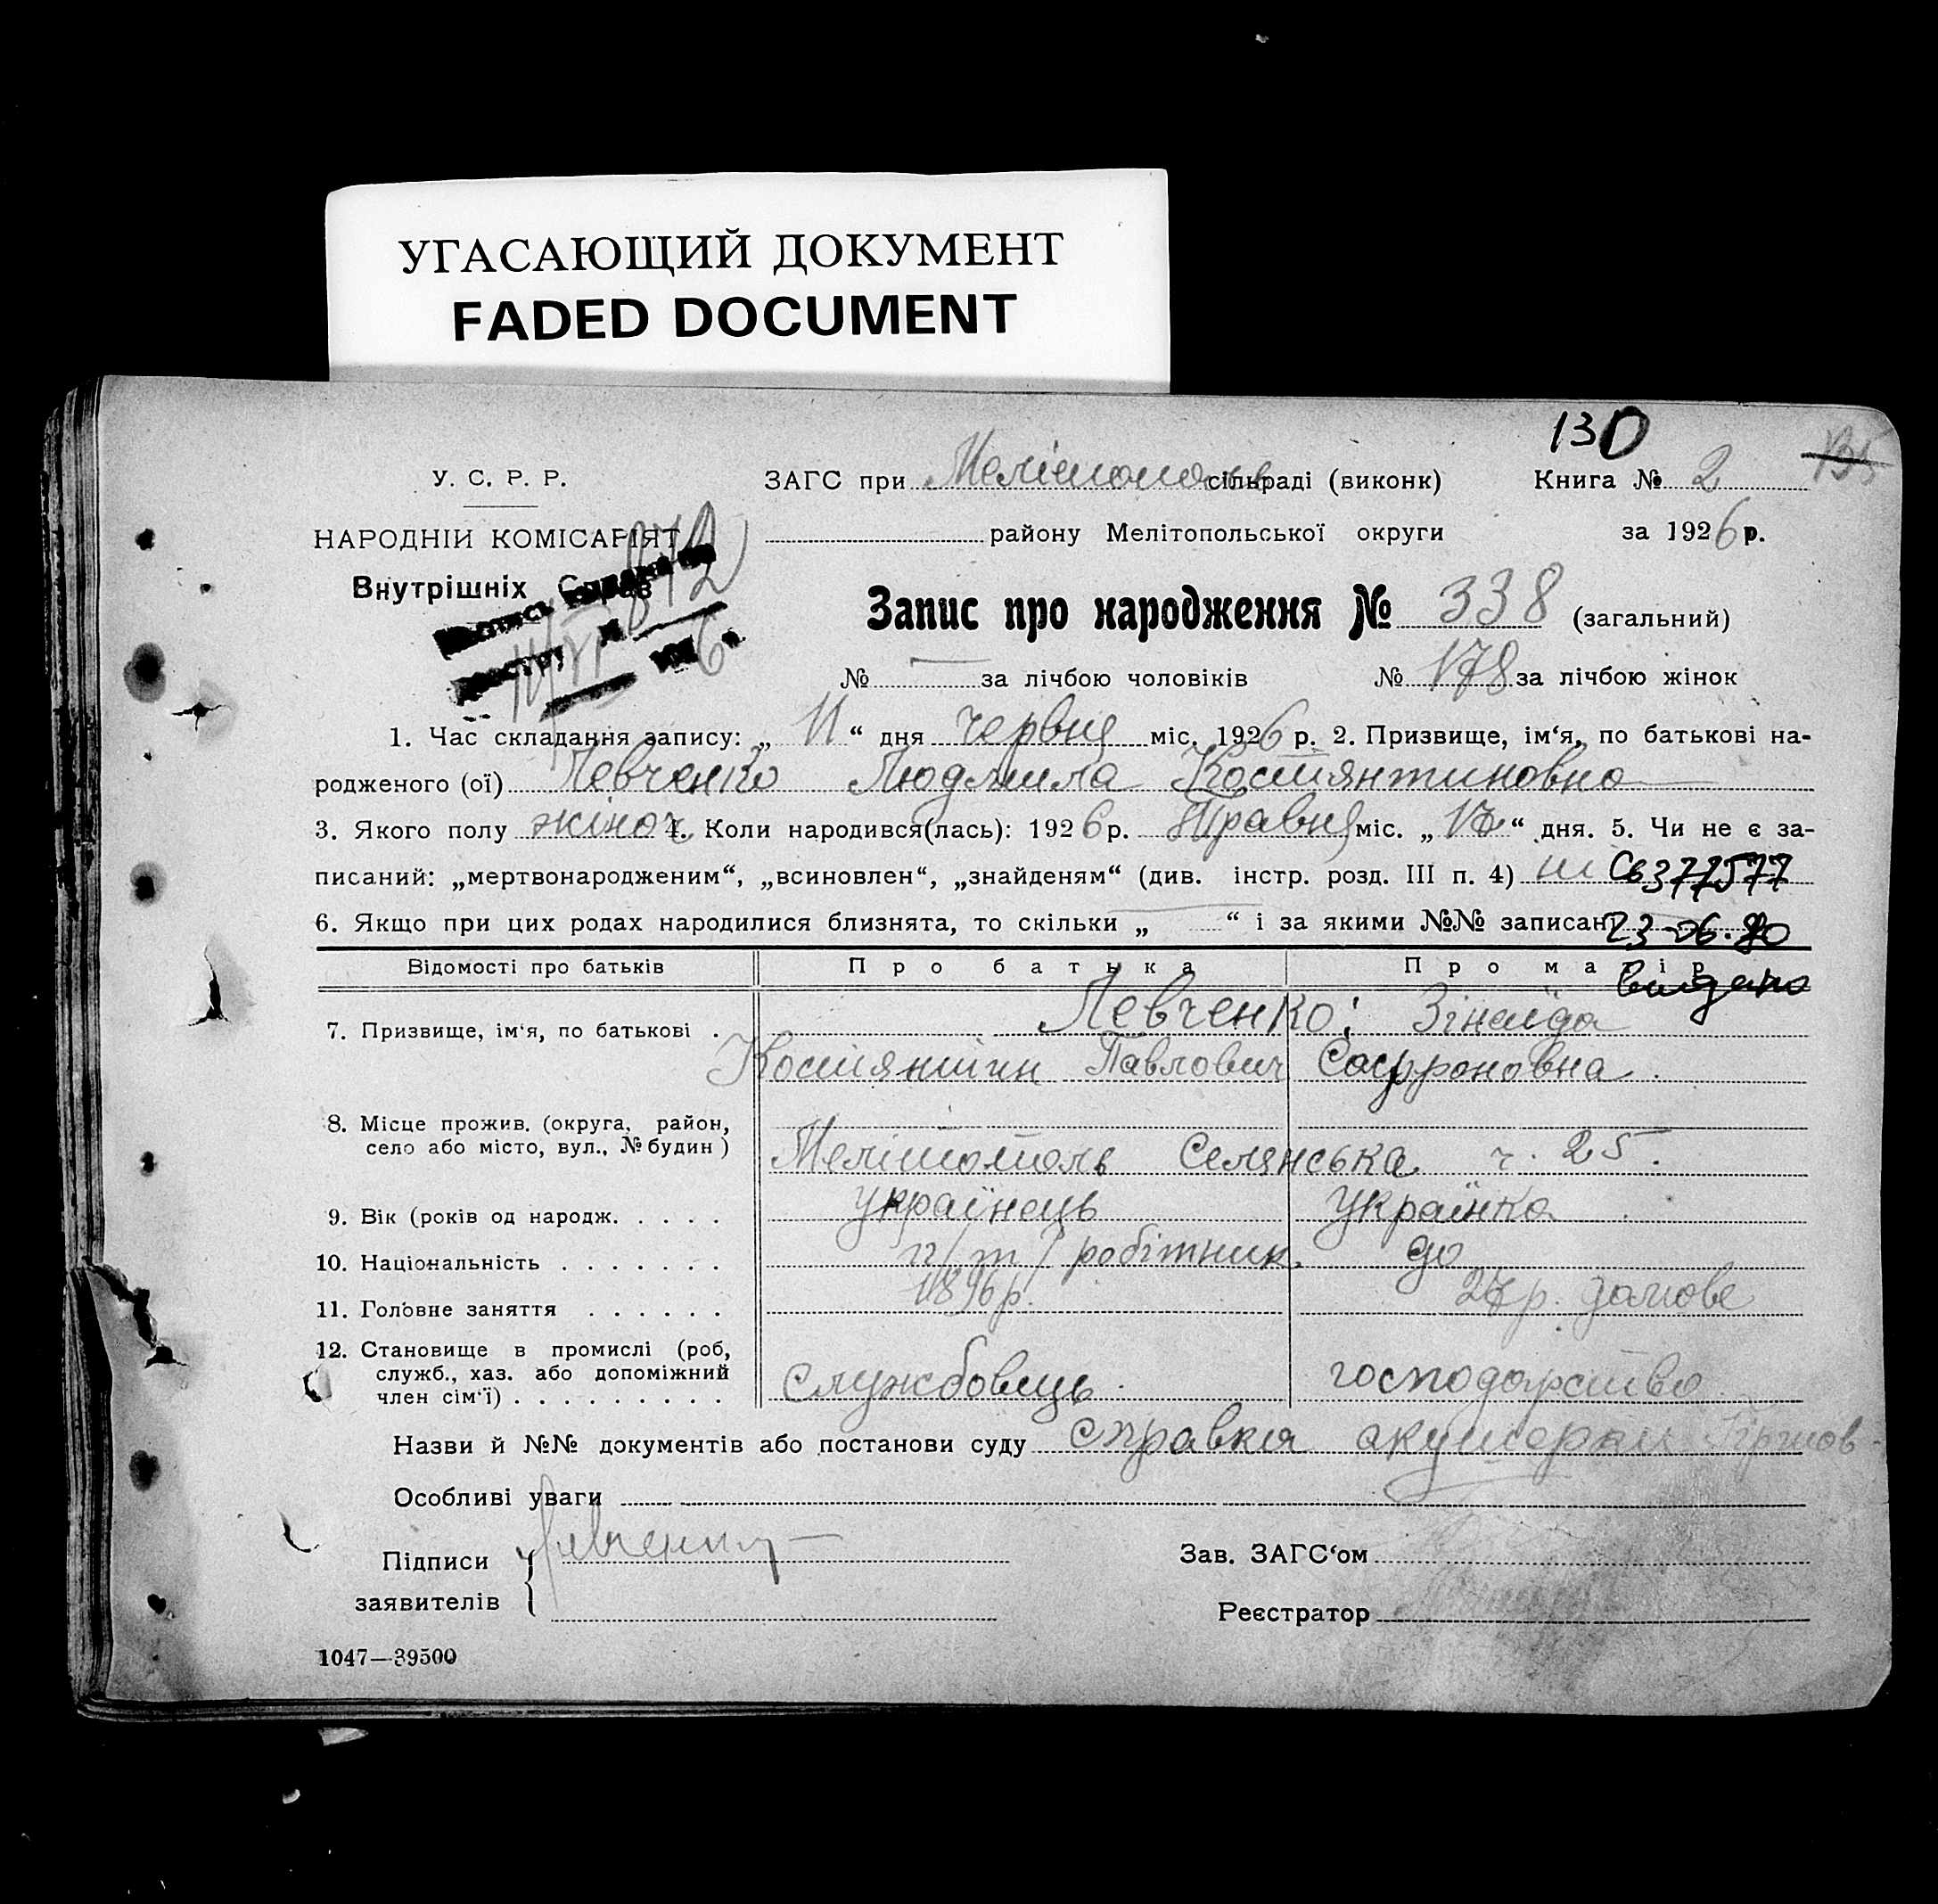 УГАСАЮЩИЙ ДОКУМЕНТ
FADED DOCUMENT
130
135
У. С. Р. Р.
ЗАГС при Мелітополь сільраді (виконк) Книга № 2
НАРОДНІЙ КОМІСАРІЯТ
872
району Мелітопольської округи за 1926 р.
Внутрішніх Справ
Запис про народження № 338 (загальний)
№ — за лічбою чоловіків № 178 за лічбою жінок
1. Час складання запису: „ 11 “ дня червня міс. 1926 р. 2. Призвище, ім‘я, по батькові на-
родженого (ої) Левченко Людмила Костянтиновна
3. Якого полу жіноч 4. Коли народився(лась): 1926 р. Травня міс. „ 17 “ дня. 5. Чи не є за-
писаний: „мертвонародженим“, „всиновлен“, „знайденям“ (див. інстр. розд. III п. 4) ні С6377577
6. Якщо при цих родах народилися близнята, то скільки „ “ і за якими №№ записані 23-06.80
Відомості про батьків Про батька Про матір видано
7. Призвище, ім‘я, по батькові . Левченко: Зінаїда
Костянтин Павлович Софроновна.
8. Місце прожив. (округа, район,
село або місто, вул., № будин ) Мелітополь Селянська ч. 25.
9. Вік (років од народж. . . . . українець українка
10. Національність . . . . . . . п/т/ робітник. до
11. Головне заняття . . . . . . 1896 р. 27 р. домове
12. Становище в промислі (роб,
служб., хаз. або допоміжний
член сім‘ї) . . . . . . . . . службовець господарство
Назви й №№ документів або постанови суду справка акушерки
Особливі уваги
Підписи
заявителів
Зав. ЗАГС‘ом
Реєстратор
1047—39500